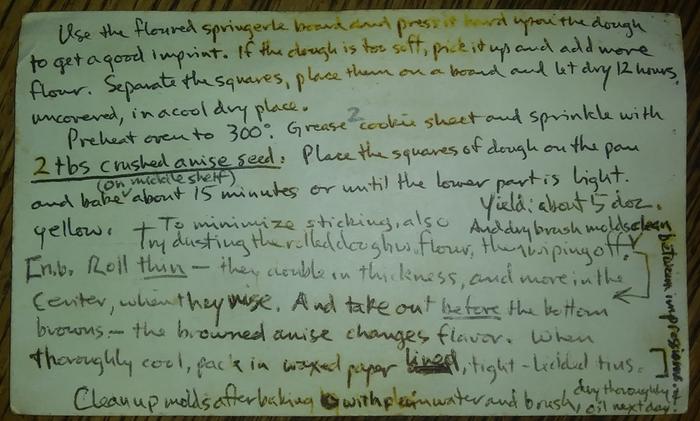 Use the floured springerle board and press it hard upon the dough
to get a good imprint. If the dough is too soft, pick it up and add more
flour. Separate the squares, place them on a board and let dry 12 hours,
uncovered, in a cool dry place.
Preheat oven to 300°. Grease 2 cookie sheet and sprinkle with
2 tbs crushed anise seed. Place the squares of dough on the pan
(on middle shelf)
and bake about 15 minutes or until the lower part is light
yellow. Yield: about 5 doz.
+ To minimize sticking, also And dry brush molds clean
Try dusting the rolled dough w. flour, then wiping off.
between impressions.
N.b. Roll thin — they double in thickness, and more in the
center, when they rise. And take out before the bottom
browns — the browned anise changes flavor. When
thoroughly cool, pack in waxed paper lined, tight-lidded tins.
Clean up molds after baking with plain water and brush,
dry thoroughly &
oil next day.